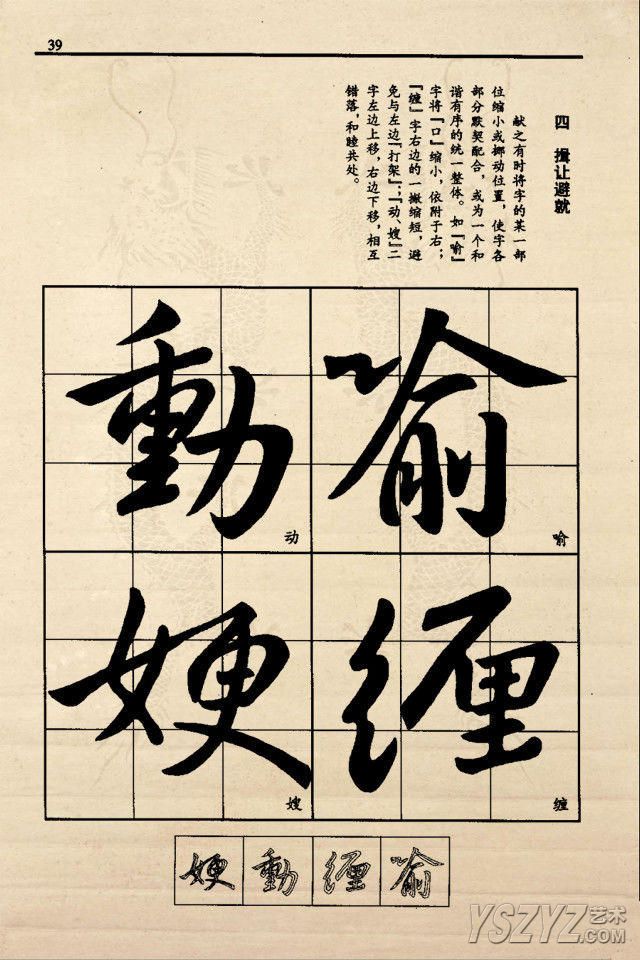 39
四 揖让避就
献之有时将字的某一部
位缩小或挪动位置，使字各
部分默契配合，或为一个和
谐有序的统一整体。如『喻』
字将『口』缩小，依附于右；
『缠』字右边的一撇缩短，避
免与左边『打架』；『动、嫂』二
字左边上移，右边下移，相互
错落，和睦共处。
喻
喻
缠
缠
動
动
嫂
嫂
喻 缠 動 嫂
YSZYZ艺术.COM